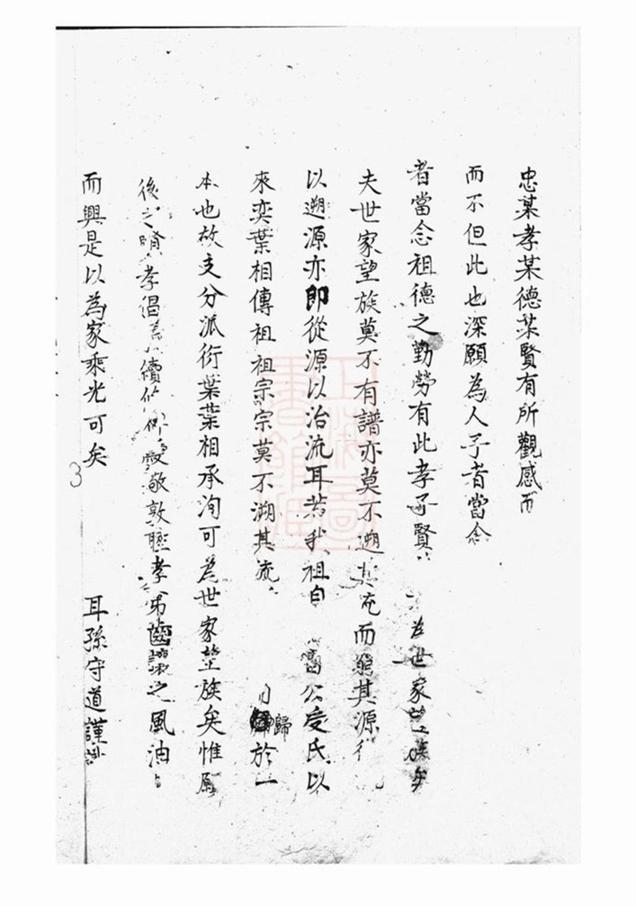 忠某孝某德某賢有所觀感而
而不但此也深願為人子者當念
者當念祖德之勤勞有此孝子賢 為世家望族矣
夫世家望族莫不有譜亦莫不遡其流而窮其源
以遡源亦即從源以治流耳若我祖自 公受氏以
來奕葉相傳祖祖宗宗莫不溯其流 歸於一
本也故支分派衍葉葉相承洵可為世家望族矣惟
後之 孝倡 續 愛敬敦 孝弟 之風油
而興是以為家乘光可矣 耳孫守道謹
3